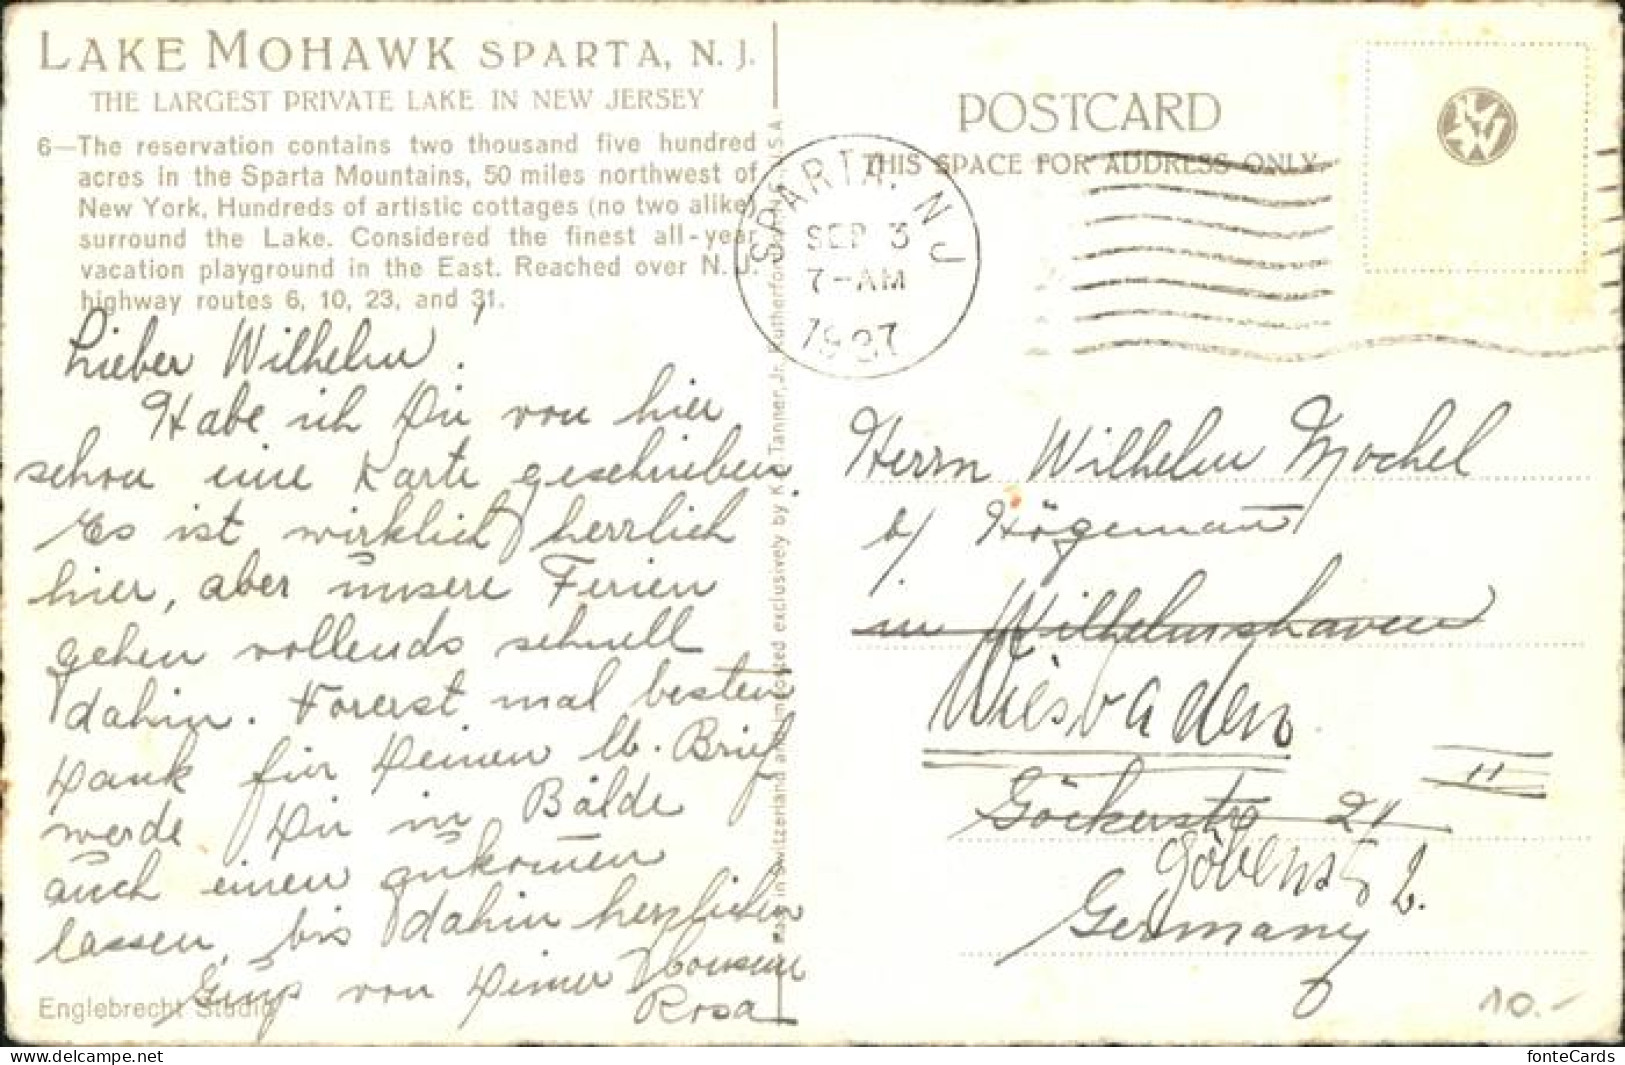 LAKE MOHAWK SPARTA, N. J.
THE LARGEST PRIVATE LAKE IN NEW JERSEY
6—The reservation contains two thousand five hundred
acres in the Sparta Mountains, 50 miles northwest of
New York. Hundreds of artistic cottages (no two alike)
surround the Lake. Considered the finest all-year
vacation playground in the East. Reached over N. J.
highway routes 6, 10, 23, and 31.
Lieber Wilhelm!
Habe ich Dir von hier
schon eine Karte geschrieben.
Es ist wirklich herrlich
hier, aber unsere Ferien
gehen vollends schnell
dahin. Vorerst mal besten
Dank für Deinen lb. Brief
werde Dir in Bälde
auch einen zukom̄en
lassen, bis dahin herzlichen
Gruß von Deiner
Rosa
Englebrecht Studio
Made in Switzerland and imported exclusively by K. Tanner, Jr., Rutherford, N.J., U.S.A.
POSTCARD
THIS SPACE FOR ADDRESS ONLY.
SPARTA, N J
SEP 3
7-AM
1937
Herrn Wilhelm Mochel
b/ Högeman̄
in Wilhelmshaven
Wiesbaden
Göckerstr 24 II
Göbenstr 2.
Germany
10.-
fonteCards
https://www.delcampe.net